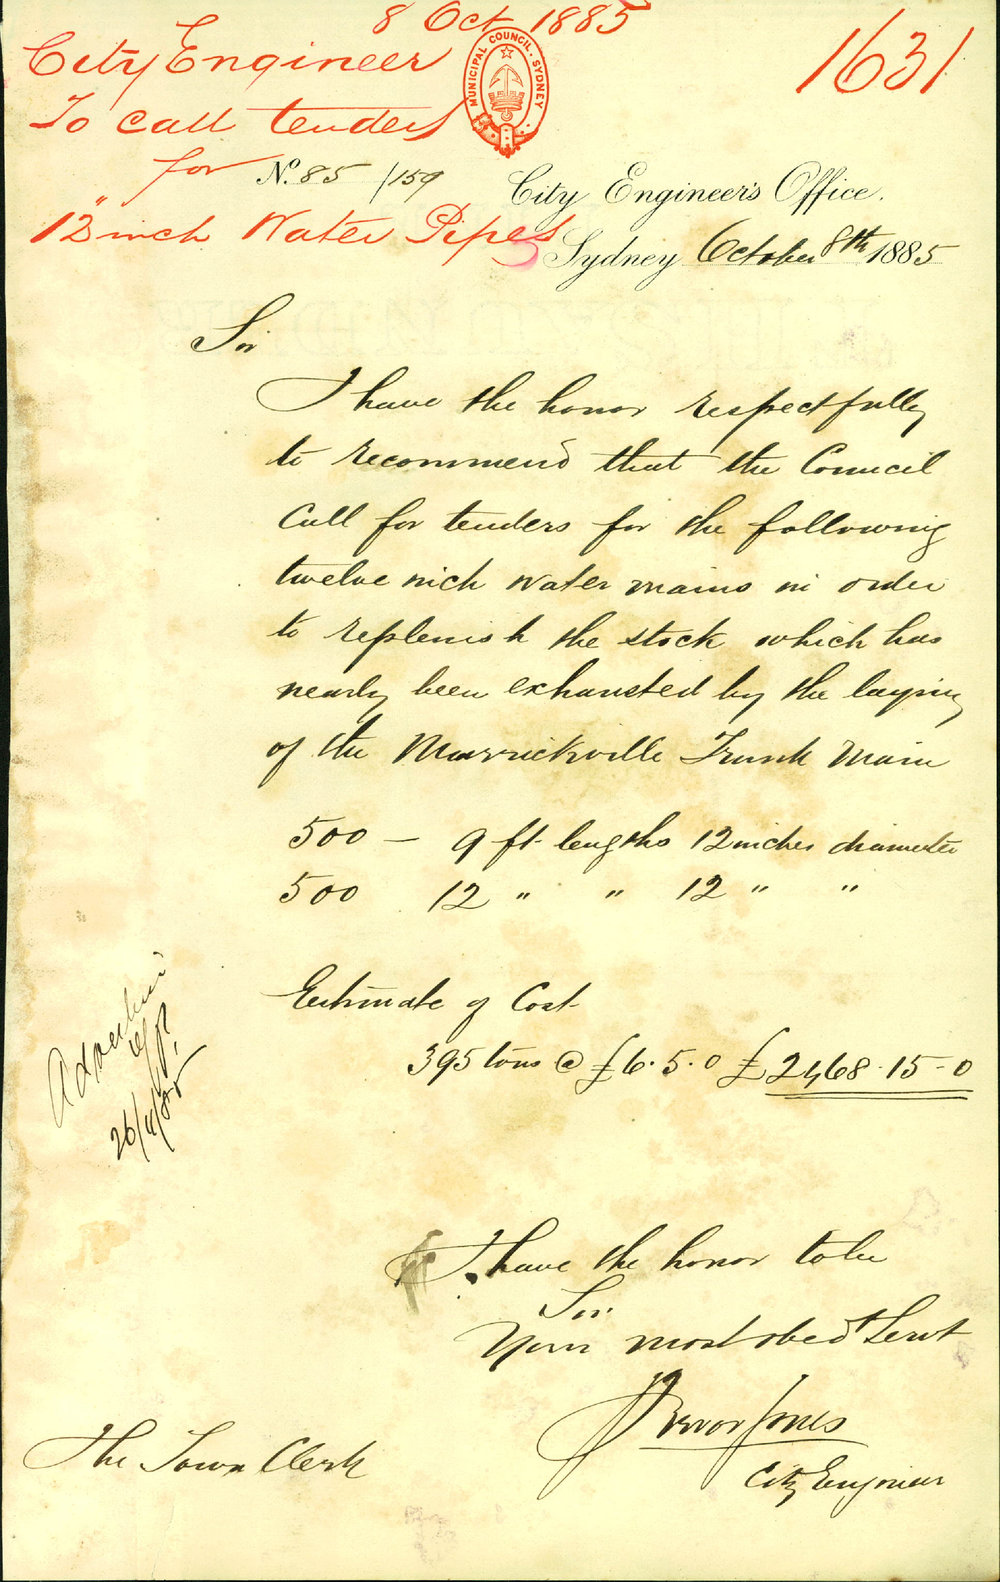 8 Oct 1885
City Engineer
To call tenders
for
12 inch Water Pipes
1631
MUNICIPAL COUNCIL. SYDNEY
No. 85 /159
City Engineer's Office.
Sydney October 8th 1885
Sir
I have the honor respectfully
to recommend that the Council
Call for tenders for the following
twelve inch water mains in order
to replenish the stock which has
nearly been exhausted by the laying
of the Marrickville Trunk Main
500 — 9 ft. lengths 12 inches diameter
500 12 " " 12 " "
Estimate of Cost
395 tons @ £6.5.0 £2,468.15-0
I have the honor to be
Sir
Your most obedt Servt
Trevor Jones
City Engineer
The Town Clerk